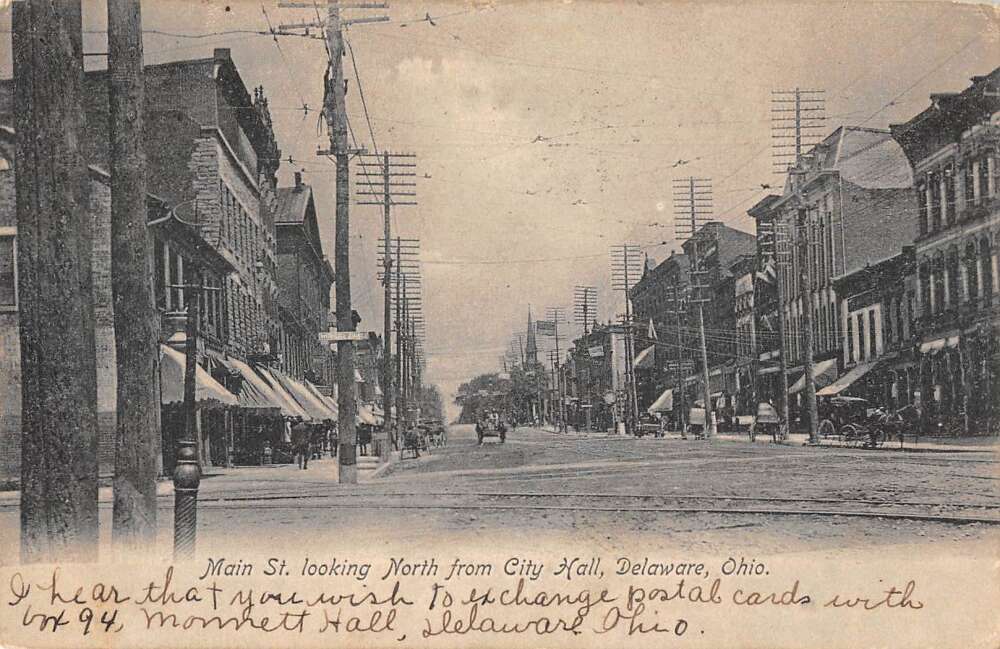 Main St. looking North from City Hall, Delaware, Ohio.
I hear that you wish to exchange postal cards with
box 94, Monnett Hall, Delaware Ohio.